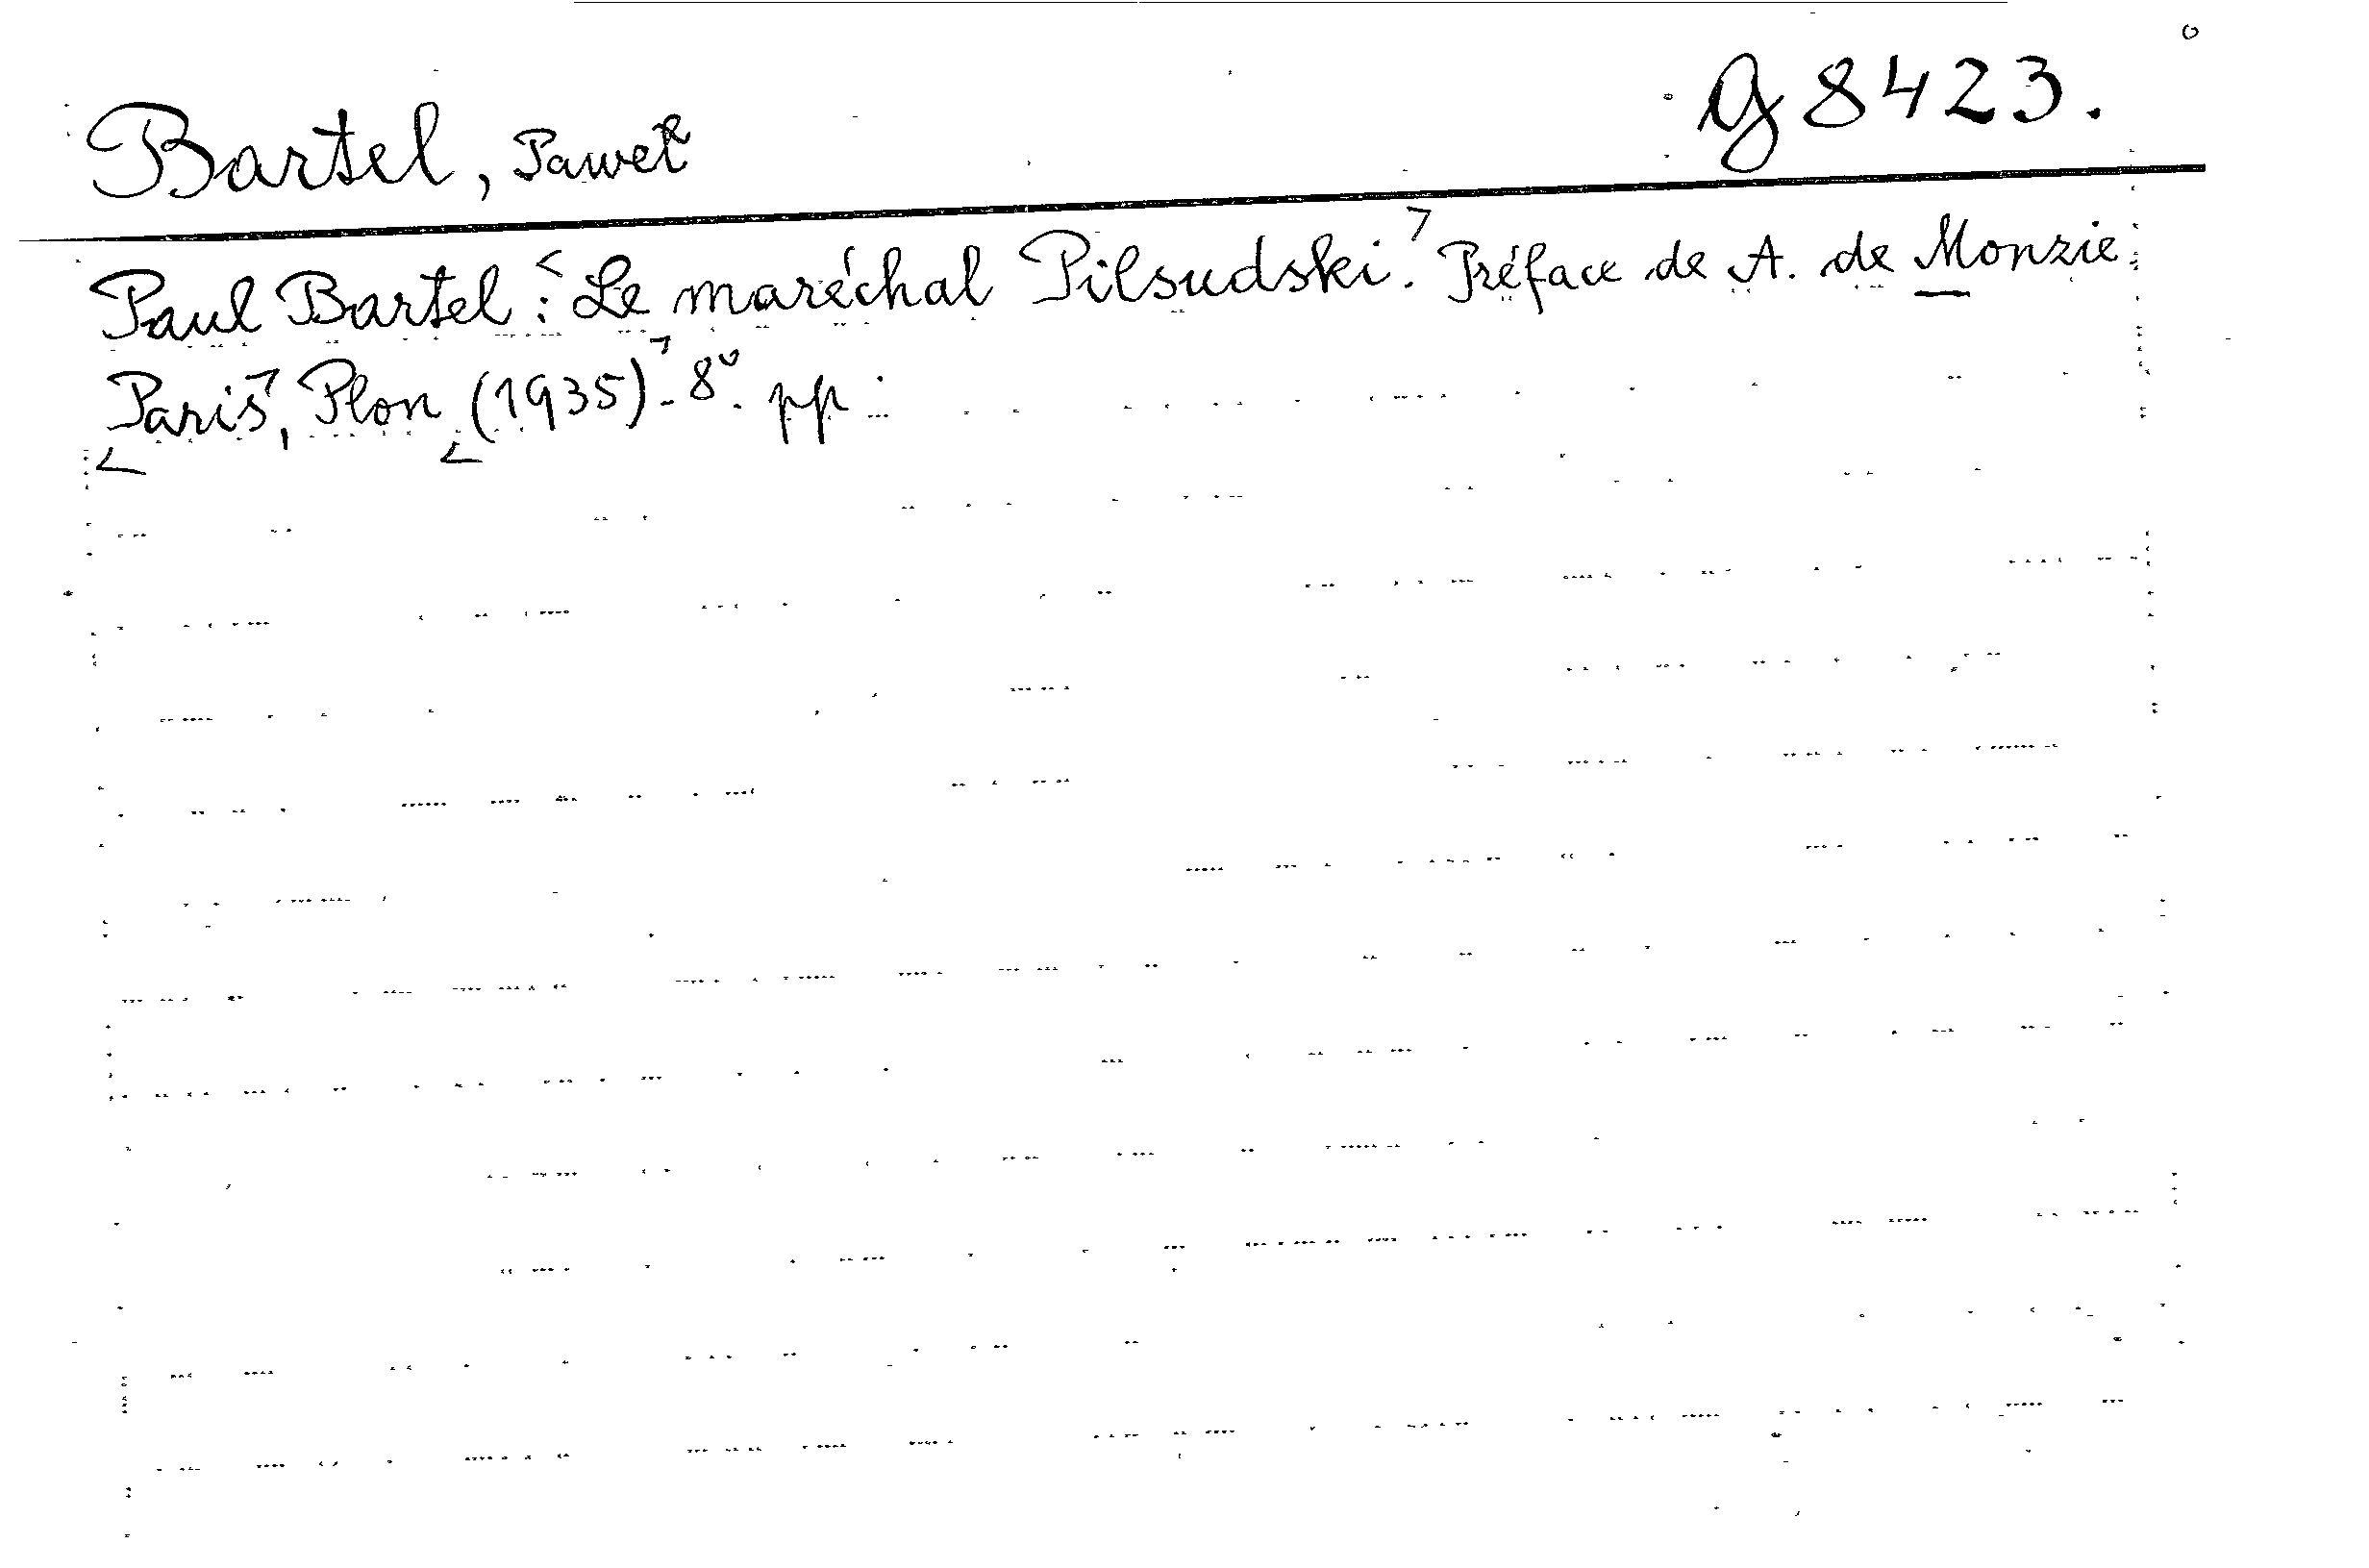 Bartel, Paweł
g 8423.
Paul Bartel: <Le maréchal Pilsudski.> Préface de A. de Monzie.
<Paris>, Plon <(1935)>. 8º. pp: